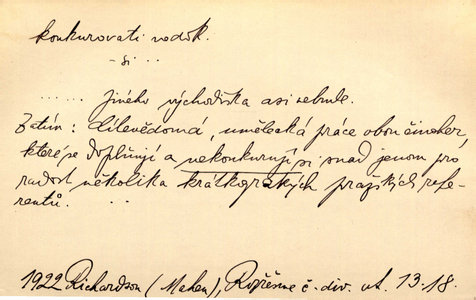 konkurovati nedok.
- si . . .
. . . . . Jiného východiska asi nebude.
Zatím: cílevědomá, umělecká práce obou činoher,
které se doplňují a nekonkurují si snad jenom pro
radost několika krátkozrakých pražských refe-
rentů. . . .
1922 Richardson (Mahen), Rozřešme č. div. ot. 13-18.